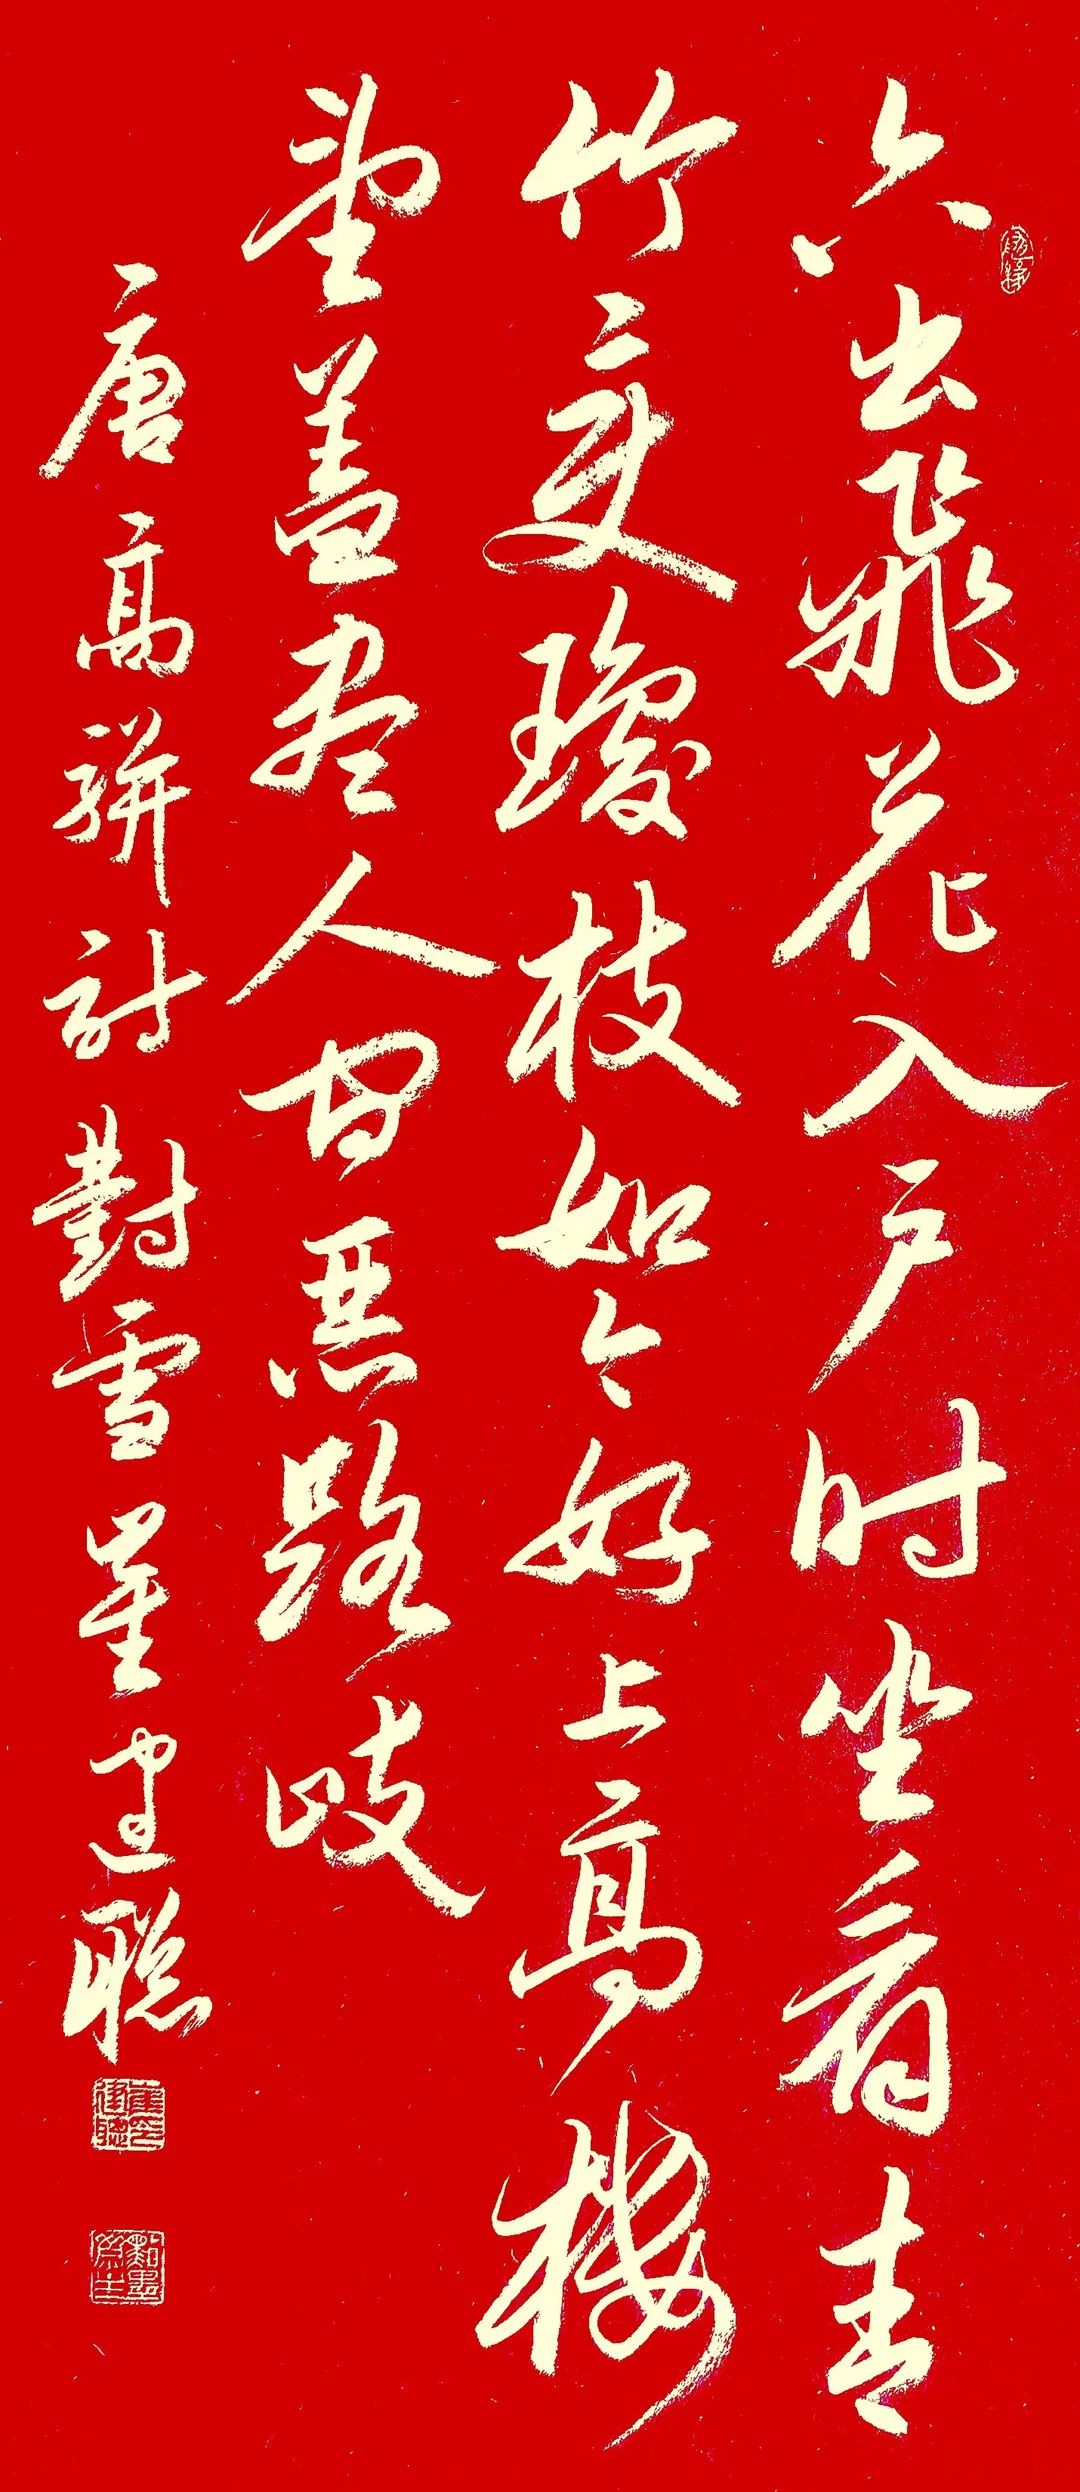 六出飛花入户时坐看青
竹变瓊枝如今好上高楼
望盖尽人间恶路岐
唐高骈诗對雪崔建聪